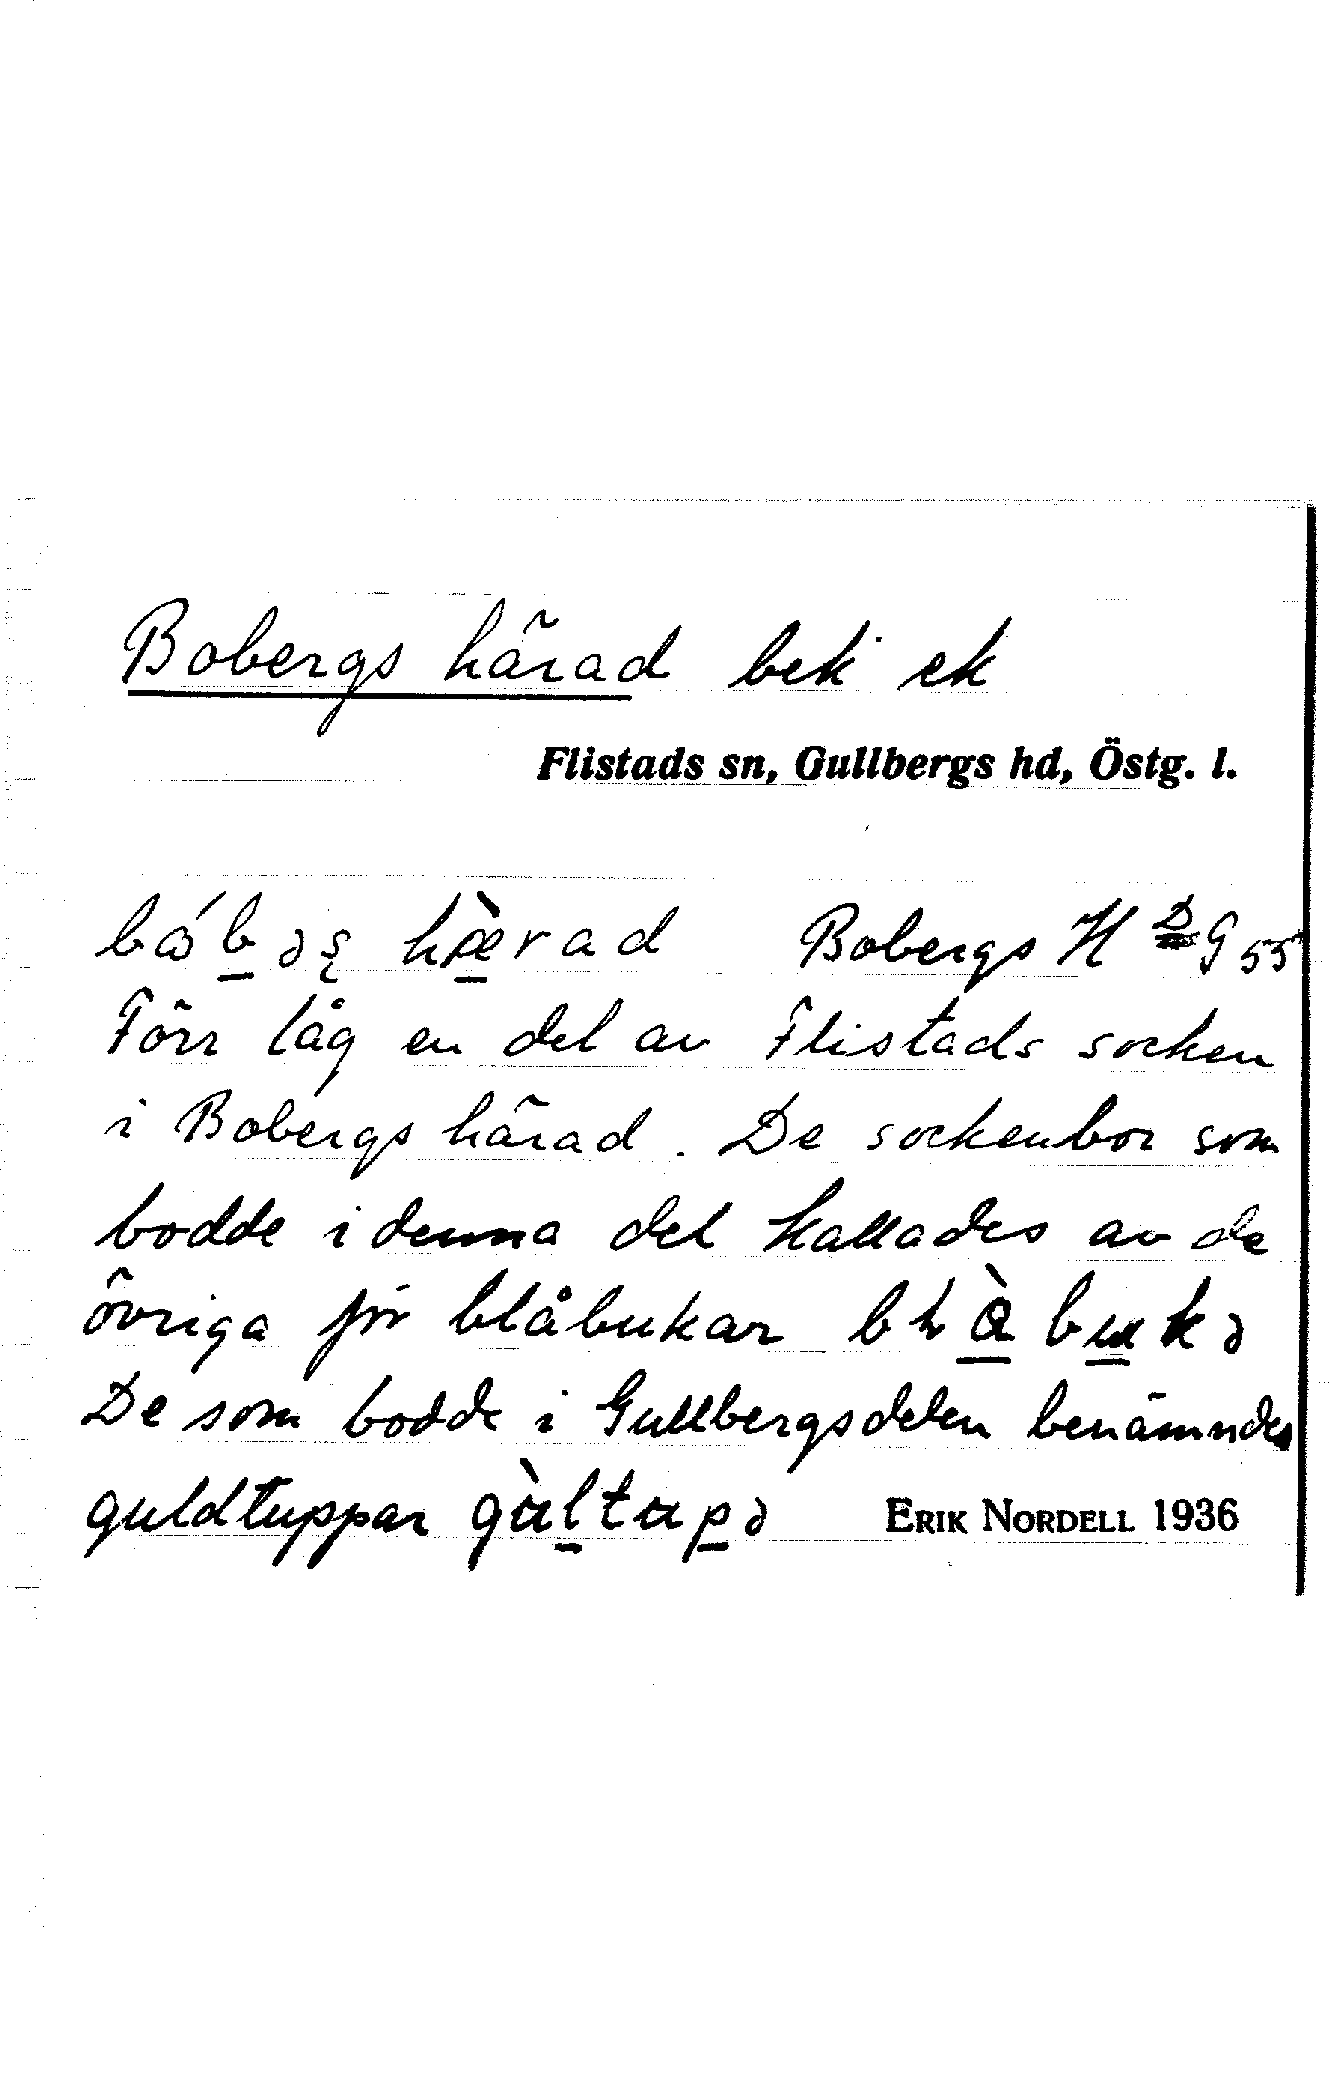 Bobergs härad bek ek
Flistads sn, Gullbergs hd, Östg. l.
Bobergs H D G 55
Förr låg en del av Flistads socken
i Bobergs härad. De sockenbor som
bodde i denna del kallades av de
övriga för blåbukar
De som bodde i Gullbergsdelen benämndes
guldtuppar ERIK NORDELL 1936